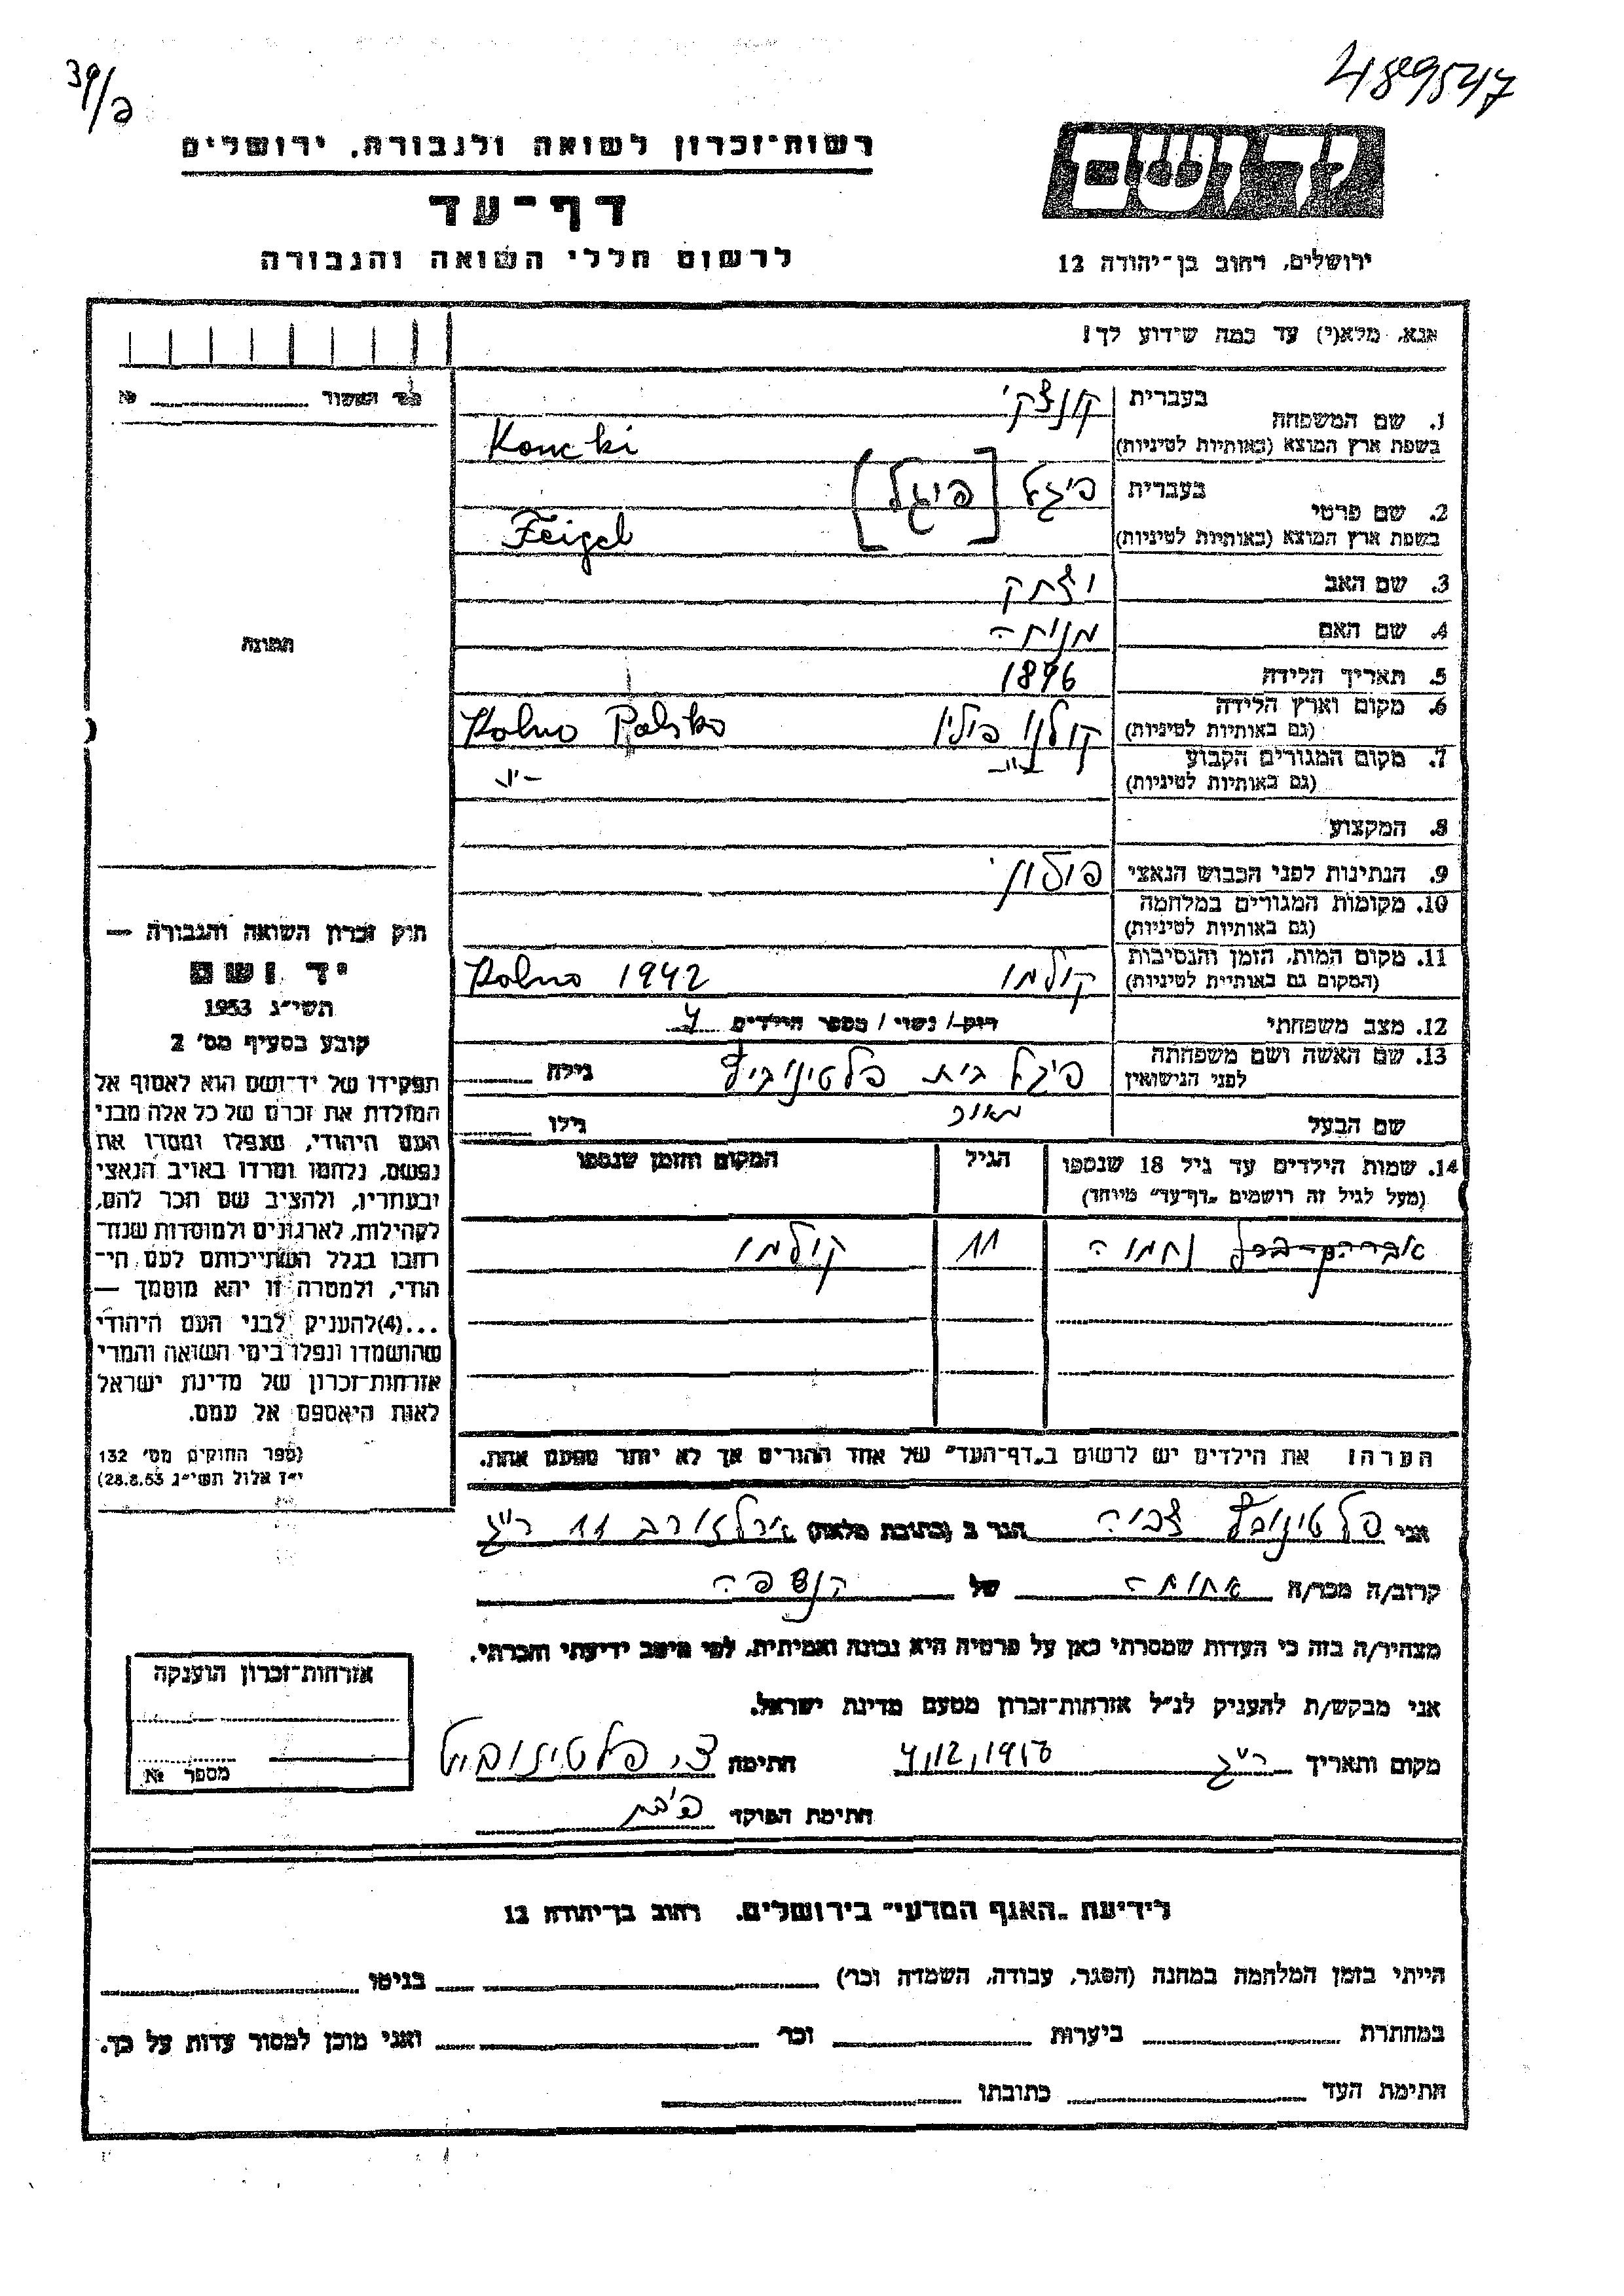 39/ג
4889547
רשות־זכרון לשואה ולגבורה. ירושלים
יד ושם
דף־עד
לרשום חללי השואה והגבורה
ירושלים, רחוב בן־יהודה 12
אנא, מלא(י) עד כמה שידוע לך!
1. שם המשפחה
בעברית קונצקי
בשפת ארץ המוצא (באותיות לטיניות) Koncki
2. שם פרטי
בעברית פיגל [פייגל]
בשפת ארץ המוצא (באותיות לטיניות) Feigel
3. שם האב יצחק
4. שם האם מנוחה
5. תאריך הלידה 1896
6. מקום וארץ הלידה קולנו פולין Kolno Polsko
(גם באותיות לטיניות)
7. מקום המגורים הקבוע -"- -"-
(גם באותיות לטיניות)
8. המקצוע
9. הנתינות לפני הכבוש הנאצי פולין
10. מקומות המגורים במלחמה
(גם באותיות לטיניות)
11. מקום המות, הזמן והנסיבות קולנו Kolno 1942
(המקום גם באותיות לטיניות)
12. מצב משפחתי רוק/ נשוי/ מספר הילדים 4
13. שם האשה ושם משפחתה פיגל בית פלטינוביץ גילה
לפני הנישואין
שם הבעל גילו
14. שמות הילדים עד גיל 18 שנספו הגיל המקום והזמן שנספו
(מעל לגיל זה רושמים „דף־עד" מיוחד)
נחמיה 11 קולנו
הערה: את הילדים יש לרשום ב„דף־העד" של אחד ההורים אך לא יותר מפעם אחת.
№
תמונה
חוק זכרון השואה והגבורה —
יד ושם
תשי"ג 1953
קובע בסעיף מס' 2
תפקידו של יד־ושם הוא לאסוף אל
המולדת את זכרם של כל אלה מבני
העם היהודי, שנפלו ומסרו את
נפשם, נלחמו ומרדו באויב הנאצי
ובעוזריו, ולהציב שם וזכר להם,
לקהילות, לארגונים ולמוסדות שנח־
רבו בגלל השתייכותם לעם הי־
הודי, ולמטרה זו יהא מוסמך —
...(4) להעניק לבני העם היהודי
שהושמדו ונפלו בימי השואה והמרי
אזרחות־זכרון של מדינת ישראל
לאות היאספם אל עמם.
(ספר החוקים מס' 132
י"ז אלול תשי"ג 28.8.53)
אני פלטינוביץ צביה הגר ב (כתובת מלאה) ארלוזורב 11 ר"ג
קרוב/ה מכר/ה אחות של הנספה
מצהיר/ה בזה כי העדות שמסרתי כאן על פרטיה היא נכונה ואמיתית, לפי מיטב ידיעתי והכרתי.
אני מבקש/ת להעניק לנ"ל אזרחות־זכרון מטעם מדינת ישראל.
מקום ותאריך ר"ג 4,12,1956 חתימה צ. פלטינוביץ
חתימת הפוקד
אזרחות־זכרון הוענקה
מספר №
לידיעת „האגף המדעי" בירושלים. רחוב בן־יהודה 12
הייתי בזמן המלחמה במחנה (הסגר, עבודה, השמדה וכו') בגיטו
במחתרת ביערות וכו' ואני מוכן למסור עדות על כך.
חתימת העד כתובתו